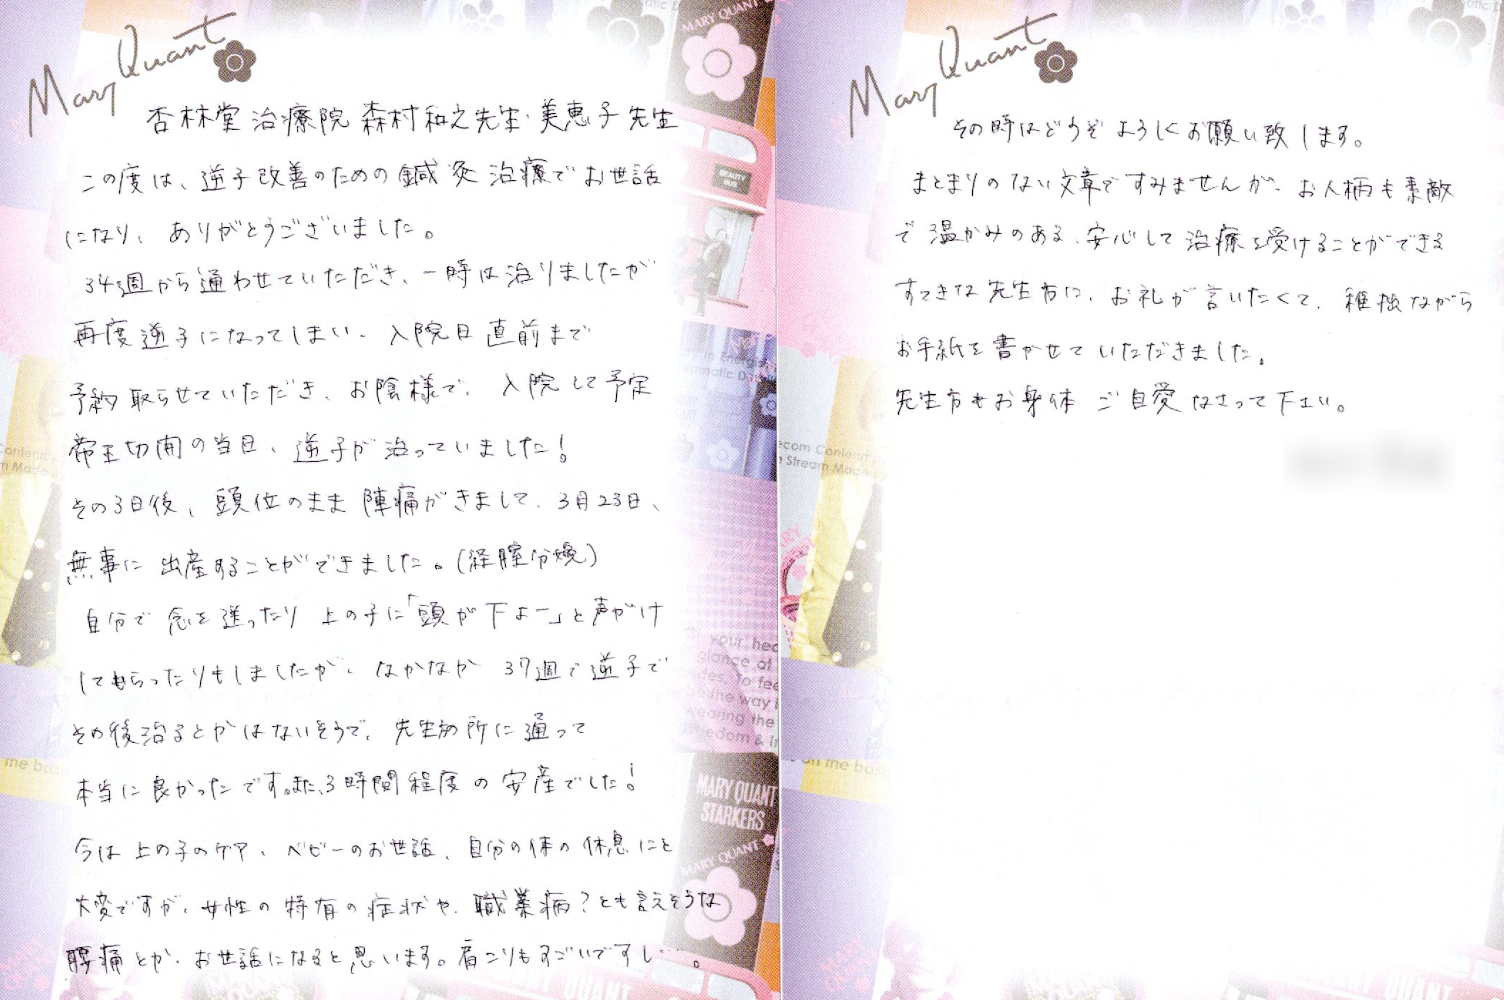 Mary Quant
杏林堂治療院 森村和之先生・美恵子先生
この度は、逆子改善のための鍼灸治療でお世話
になり、ありがとうございました。
34週から通わせていただき、一時は治りましたが
再度逆子になってしまい、入院日直前まで
予約取らせていただき、お陰様で、入院して予定
帝王切開の当日、逆子が治っていました!
その3日後、頭位のまま陣痛がきまして、3月23日、
無事に出産することができました。(経腟分娩)
自分で念を送ったり上の子に「頭が下よー」と声がけ
してもらったりもしましたが、なかなか37週で逆子で
その後治るとかはないそうで、先生の所に通って
本当に良かったです。また、3時間程度の安産でした!
今は上の子のケア、ベビーのお世話、自分の体の休息にと
大変ですが、女性の特有の症状や、職業病?とも言えそうな
腰痛とか、お世話になると思います。肩こりもすごいですし…。
Mary Quant
その時はどうぞよろしくお願い致します。
まとまりのない文章ですみませんが、お人柄も素敵
で温かみのある、安心して治療を受けることができる
すてきな先生方に、お礼が言いたくて、稚拙ながら
お手紙を書かせていただきました。
先生方もお身体ご自愛なさって下さい。
MARY QUANT
BEAUTY BUS
MARY QUANT
STARKERS
MARY QUANT